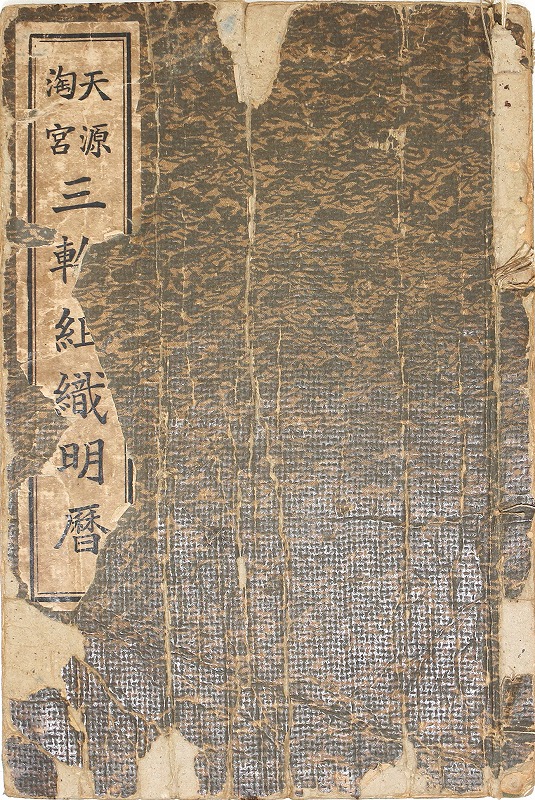 天源
淘宮
三軒組織明暦